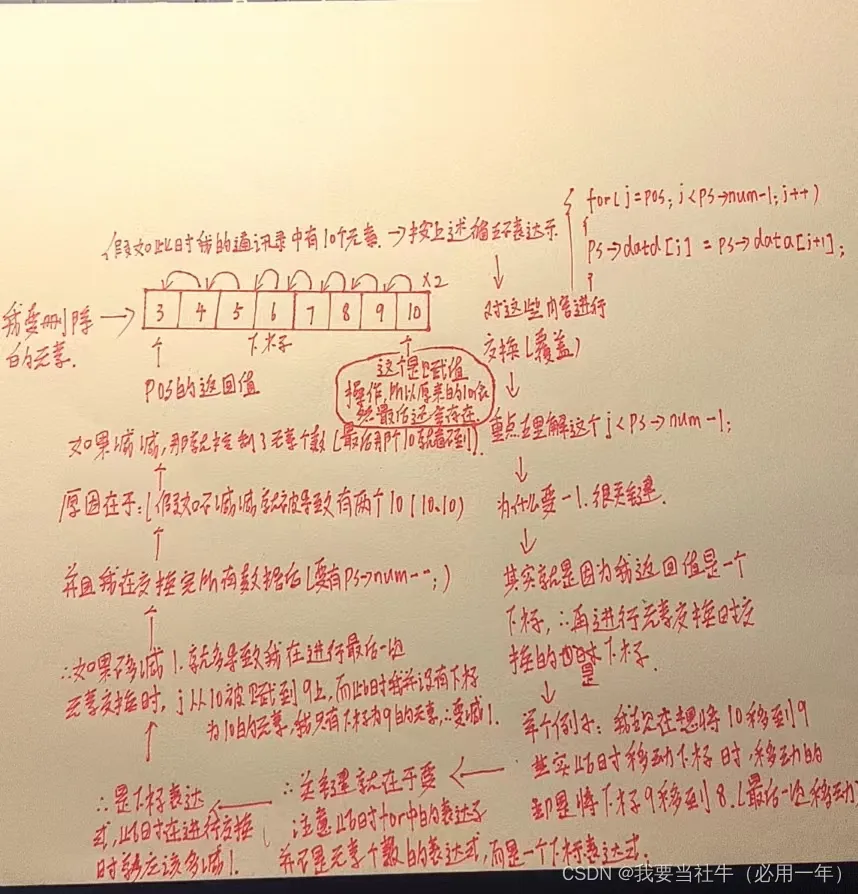 for(j=pos; j<ps→num-1; j++)
{
ps→data[j] = ps→data[j+1];
}
假如此时我的通讯录中有10个元素. →按上述循环表达示
对这些内容进行
交换(覆盖)
×2
我要删除
的元素.
3 4 5 6 7 8 9 10
下标
pos的返回值
这个是赋值
操作, 所以原来的10依
然最后还会存在.
如果减减, 那就控制了元素个数(最后那个10就看不到).
原因在于:(假如不减减就被导致有两个10(10.10)
并且我在交换完所有数据后(要有ps→num--;)
∴如果不多减1. 就会导致我在进行最后一次
元素交换时, j从10被赋到9上, 而此时我并没有下标
为10的元素, 我只有下标为9的元素, ∴要减1.
∴是下标表达
式, 此时在进行交换
时就应该多减1.
重点在理解这个j<ps→num-1;
为什么要-1. 很关键.
其实就是因为我返回值是一个
下标, ∴再进行元素交换时交
换的是下标.
举个例子: 我现在想将10移到9
其实此时移动下标时, 移动的
却是将下标9移到8.(最后一次移动
∴关键就在于要
注意此时for中的表达子
并不是元素个数的表达式, 而是一个下标表达式.
CSDN @我要当社牛（必用一年）